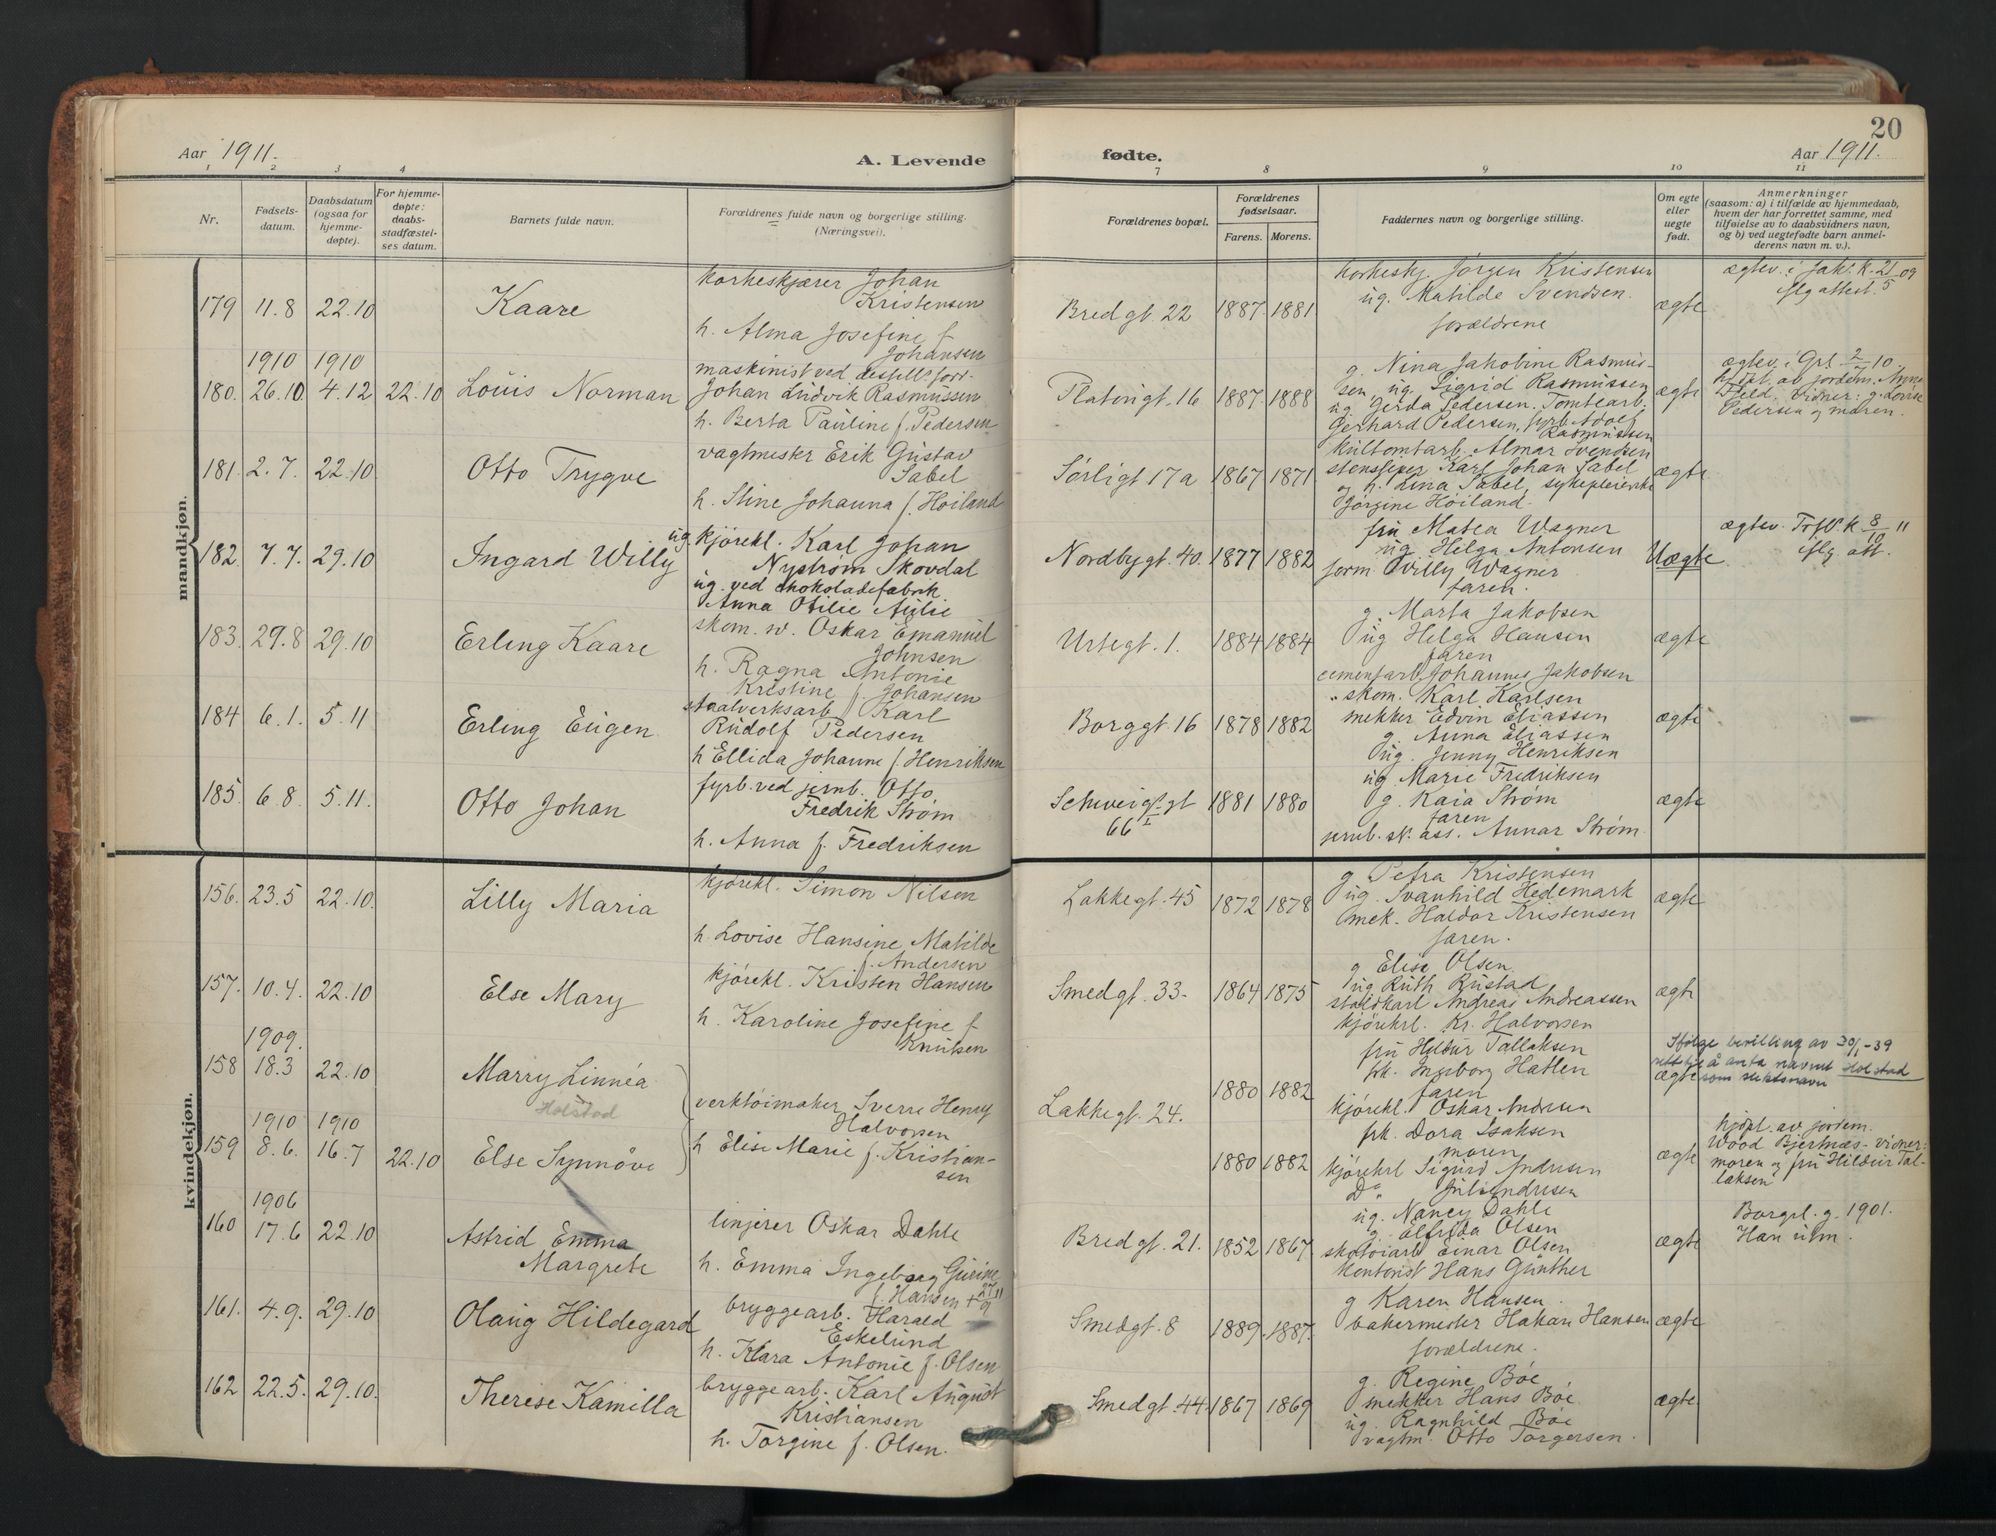 20
Aar 1911.
A. Levende
fødte.
Aar 1911.
1 2 3 4 7 8 9 10 11
Nr.
Fødsels-
datum.
Daabsdatum
(ogsaa for
hjemme-
døpte).
For hjemme-
døpte:
daabs-
stadfæstel-
ses datum.
Barnets fulde navn.
Forældrenes fulde navn og borgerlige stilling.
(Næringsvei).
Forældrenes bopæl.
Forældrenes
fødselsaar.
Farens. Morens.
Faddernes navn og borgerlige stilling.
Om egte
eller
uegte
født.
Anmerkninger
(saasom: a) i tilfælde av hjemmedaab,
hvem der har forrettet samme, med
tilføielse av to daabsvidners navn,
og b) ved uegtefødte barn anmel-
derens navn m. v.).
mandkjøn.
179 11.8 22.10
Kaare
korkeskjærer Johan
Kristensen
h. Alma Josefine f
Johansen
Bredgt. 22 1887. 1881
korkeskj. Jørgen Kristensen
ug. Matilde Svendsen.
forældrene
ægte
ægtev. i Jak. K. 21/5 09
iflg attest.
1910 1910
180. 26.10 4.12 22.10
Louis Norman
maskinist ved destill.forr.
Johan Ludvik Rasmussen
h. Berta Pauline f. Pedersen
Platingt. 16 1887. 1888
g. Nina Jakobine Rasmus-
sen ug. Sigrid Rasmussen
ug Gerda Pedersen. Tomtearb.
Gerhard Pedersen, fyrb Adolf
Rasmussen
ægte
ægtev. i Grl. 2/10.
av jordem. Anne
vidner: g. Lovise
Pedersen og moren.
181. 2.7. 22.10
Otto Trygve
vagtmester Erik Gustav
Sabel
h. Stine Johanna f. Høiland
Sørligt 17a 1867 1871
Almar Svendsen
Karl Johan Sabel
og h. Lina Sabel, sykepleierske
Jørgine Høiland.
ægte
182. 7.7. 29.10
Ingard Willy
ug. kjørekl. Karl Johan
Nystrøm Skovdal
ug. ved chokoladefabrik
Anna Otilie Aulie
Nordbygt. 40. 1877 1882
fru Matea Wagner
ug. Helga Antonsen
form. Willy Wagner
faren.
Uægte
ægtev. Trfk K 8/10 11
iflg. att.
183. 29.8 29.10
Erling Kaare
skom. sv. Oskar Emanuel
Johnsen
h. Ragna Antonie
Kristine f. Johansen
Urtegt. 1. 1884 1884
g. Marta Jakobsen
ug Helga Hansen
faren
cementarb. Johannes Jakobsen
ægte
184 6.1. 5.11
Erling Eugen
staalverksarb. Karl
Rudolf Pedersen
h Ellida Johanne f. Henriksen
Borggt. 16 1878 1882
skom. Karl Karlsen
mekker Edvin Eliassen
g. Anna Eliassen
ug. Jenny Henriksen
ægte
185. 6.8. 5.11.
Otto Johan
fyrb. ved jernb. Otto
Fredrik Strøm
h. Anna f. Fredriksen
Schweigs gt
66 I
1881 1880
ug Marie Fredriksen
g. Kaia Strøm
faren
jernb. sk. ass. Annar Strøm.
ægte
kvindekjøn.
156. 23.5 22.10.
Lilly Maria
kjørekl. Simon Nilsen
h. Lovise Hansine Matilde
f. Andersen
Lakkegt. 45 1872 1878
g. Petra Kristensen
ug. Svanhild Hedemark
mek. Haldor Kristensen
faren.
ægte
157. 10.4. 22.10
Else Mary
kjørekl. Kristen Hansen
h. Karoline Josefine f
Knutsen
Smedgt. 33. 1864 1875
g Elise Olsen.
ug Ruth Rustad
staldkarl Andreas Andreassen
kjørekrl. Kr. Halvorsen
ægt
1909.
158 18.3 22.10
Marry Linnéa
Holstad
verktøimaker Sverre Henry
Halvorsen
h Elise Marie f. Kristian-
sen
Lakkegt. 24. 1880 1882
fru Hildur Tallaksen
frk. Ingborg Hatlen
faren
kjørekl. Oskar Andersen
ægte
Ifølge bevilling av 30/1-39
rett til å anta navnet Holstad
som slektsnavn
1910 1910
159 8.6. 16.7 22.10
Else Synnøve
1880 1882
frk. Dora Isaksen
moren
kjørekrl Sigurd Andersen
Do
ægte
hjdpt. av jordem.
Wood Bjertnæs - vidner:
moren og fru Hildur Tal-
laksen
1906
160 17.6 22.10
Astrid Emma
Margrete
linjerer Oskar Dahle
h. Emma Ingeborg Gurine
f. Hansen + 27/9 11
Bredgt. 21. 1852 1867
ug. Nancy Dahle
g. Elfrida Olsen
skotøiarb Einar Olsen
kontorist Hans Günther
ægte
Borgrl. g. 1901.
Han utm.
161. 4.9. 29.10
Olaug Hildegard
bryggearb. Harald
Eskelund
h. Klara Antonie f. Olsen
Smedgt. 8 1889. 1887.
g Karen Hansen.
bakermester Hakan Hansen
forældrene.
ægte
162 22.5. 29.10.
Therese Kamilla
bryggearb. Karl August
Kristiansen
h. Torgine f. Olsen.
Smedgt. 44. 1867 1869
g. Regine Bøe
mekker Hans Bøe
ug. Ragnhild Bøe
vagtm. Otto Torgersen.
ægte